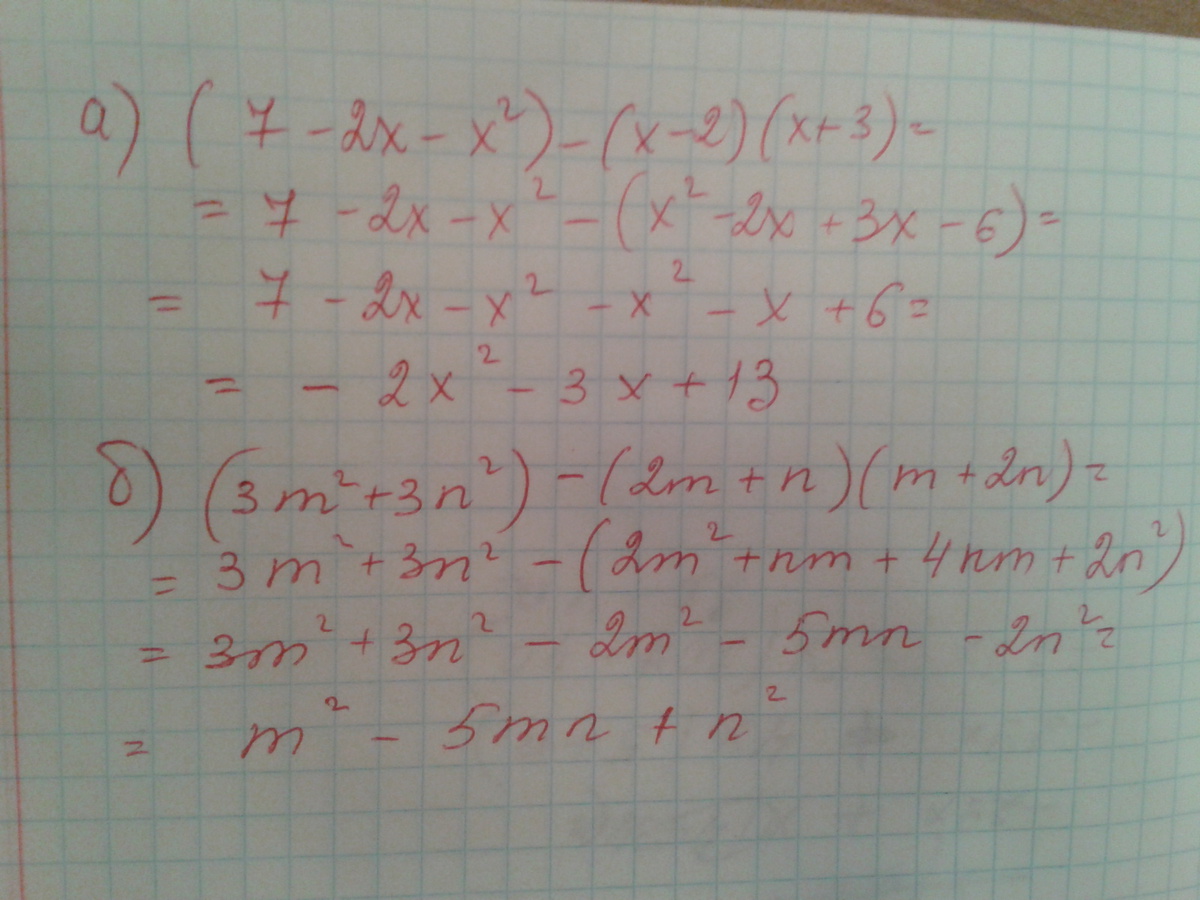 а) (7 - 2x - x²) - (x - 2)(x + 3) =
= 7 - 2x - x² - (x² - 2x + 3x - 6) =
= 7 - 2x - x² - x² - x + 6 =
= - 2x² - 3x + 13
б) (3m² + 3n²) - (2m + n)(m + 2n) =
= 3m² + 3n² - (2m² + nm + 4nm + 2n²)
= 3m² + 3n² - 2m² - 5mn - 2n² =
= m² - 5mn + n²